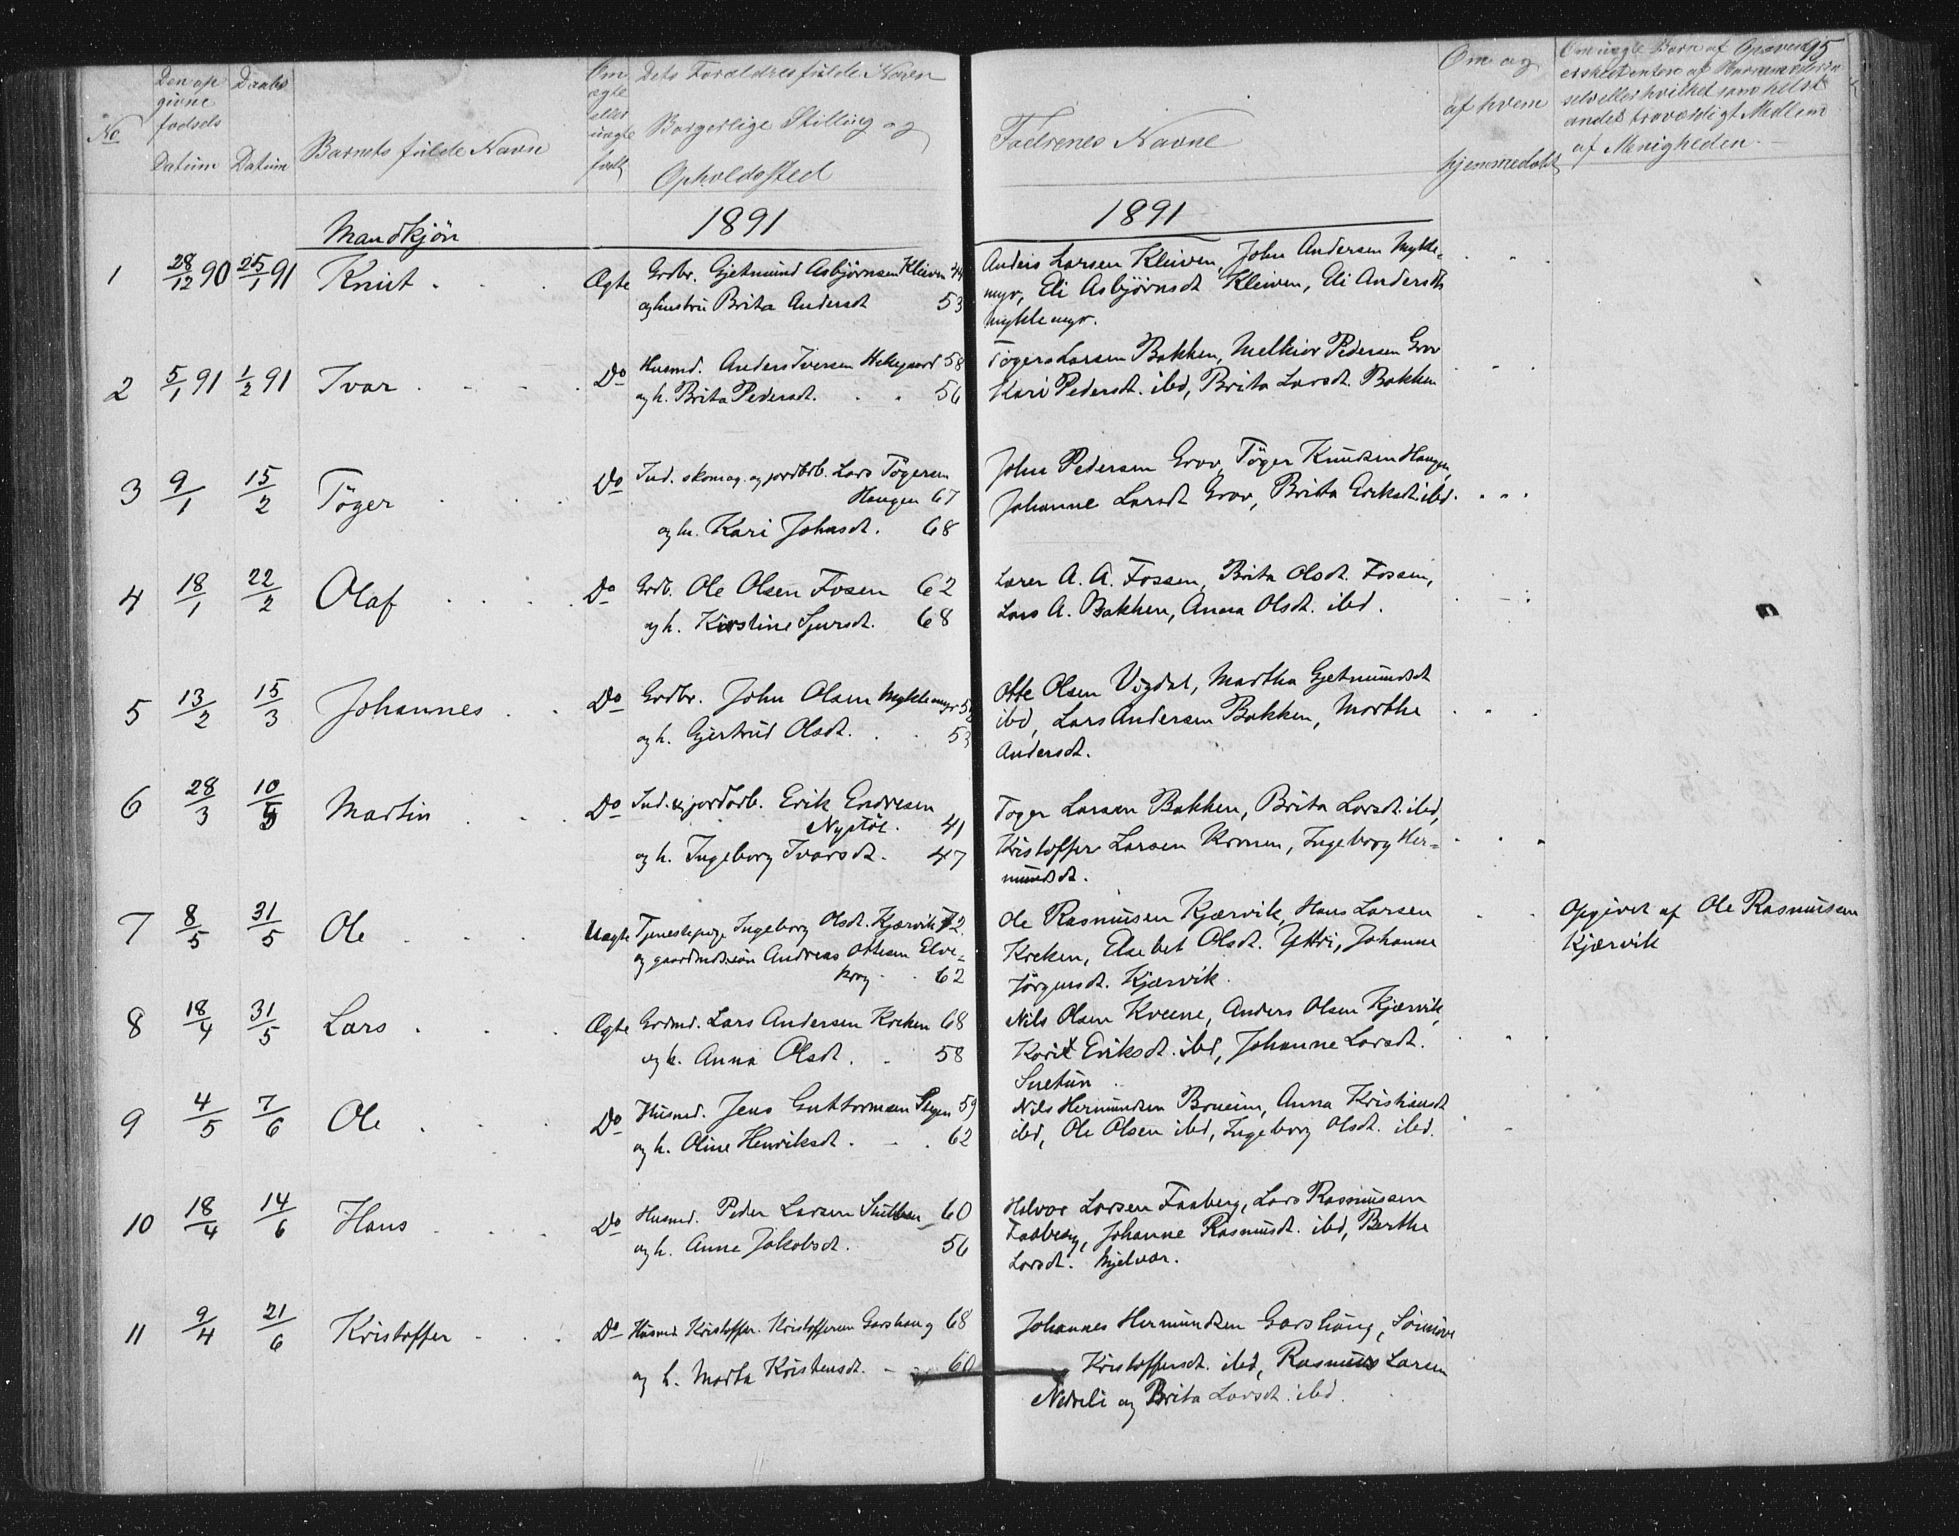 No
Den op
givne
fødsels
Datum
Daabs
Datum
Barnets fulde Navn
Om
ægte
eller
uægte
født
Dets Forældres fulde Navn
Borgerlige Stilling og
Opholdssted
Faddernes Navne
Om og
af hvem
hjemmedøbt
95
Om uægte Barn af Graven
andet troværdigt Medlem
af Menigheden
Mandkjøn
1891
1891
1 28/12 90 25/1 91 Knut Ægte Grdbr. Gjetmund Asbjørnsen Kleiven 44
og hustru Brita Andersdt 53
Anders Larsen Kleiven, John Andersen Mykle-
myr, Eli Asbjørnsdt Kleiven, Eli Andersdt
Myklemyr.
2 5/1 91 1/2 91 Ivar Do Husmd. Anders Iversen Hekegaard 58
og h. Brita Pedersdt. 56
Tøger Larsen Bakken, Melkior Pedersen Grov
Kari Pedersdt. ibd, Brita Larsdt. Bakken
3 9/1 15/2 Tøger Do Ind. skomag. og jordbrb. Lars Tøgersen
Haugen 67
og h. Kari Johnsdt. 68
John Pedersen Grov, Tøger Knudsen Haugen,
Johanne Larsdt Grov, Brita Eriksdt. ibd.
4 18/1 22/2 Olaf Do Grdb. Ole Olsen Fosen 62
og h. Kirstine Sjursdt. 68
Lærer A. A. Fossen, Brita Olsdt. Fossen,
Lars A. Bakken, Anna Olsdt. ibd.
5 13/2 15/3 Johannes Do Grdbr. John Olsen Myklemyr
og h. Gjertrud Olsdt. 53
Otte Olsen Vigdal, Martha Gjetmundsdt
ibd, Lars Andersen Bakken, Marthe
Andersdt.
6 28/3 10/5 Martin Do Ind. & jordarb. Erik Endresen
Nystøl. 41
og h. Ingeborg Ivarsdt. 47
Tøger Larsen Bakken, Brita Larsdt. ibd,
Kristoffer Larsen Kronen, Ingeborg Her-
mundsdt.
7 8/5 31/5 Ole Uægte Tjenestepige Ingeborg Olsdt. Kjærvik 72.
og gaardmdssøn Andreas Ottesen Elve-
krog 62
Ole Rasmusen Kjærvik, Hans Larsen
Kreken, Elsebet Olsdt. Yttri, Johanne
Jørgensdt. Kjærvik.
Opgivet af Ole Rasmusen
Kjærvik
8 18/4 31/5 Lars Ægte Grdmd. Lars Andersen Kreken 68
og h. Anna Olsdt. 58
Nils Olsen Kveene, Anders Olsen Kjærvik,
Kari Eriksdt. ibd, Johanne Larsdt.
Snetun
9 4/5 7/6 Ole Do Husmd. Jens Guttormsen Stegen 59
og h. Oline Henriksdt. 62
Nils Hermundsen Brueim, Anna Kristiansdt
ibd, Ole Olsen ibd, Ingeborg Olsdt. ibd.
10 18/4 14/6 Hans Do Husmd. Peder Larsen 60
og h. Anne Jakobsdt. 56
Halvor Larsen Faaberg, Lars Rasmussen
Faaberg, Johanne Rasmusdt. ibd, Berthe
Larsdt. Mjelvær.
11 9/4 21/6 Kristoffer Do Husmd. Kristoffer Kristoffersen Garshaug 68
og h. Marta Kristensdt. 60
Johannes Hermundsen Garshaug, Sønnøve
Kristoffersdt. ibd, Rasmus Larsen
Nedreli og Brita Larsdt. ibd.